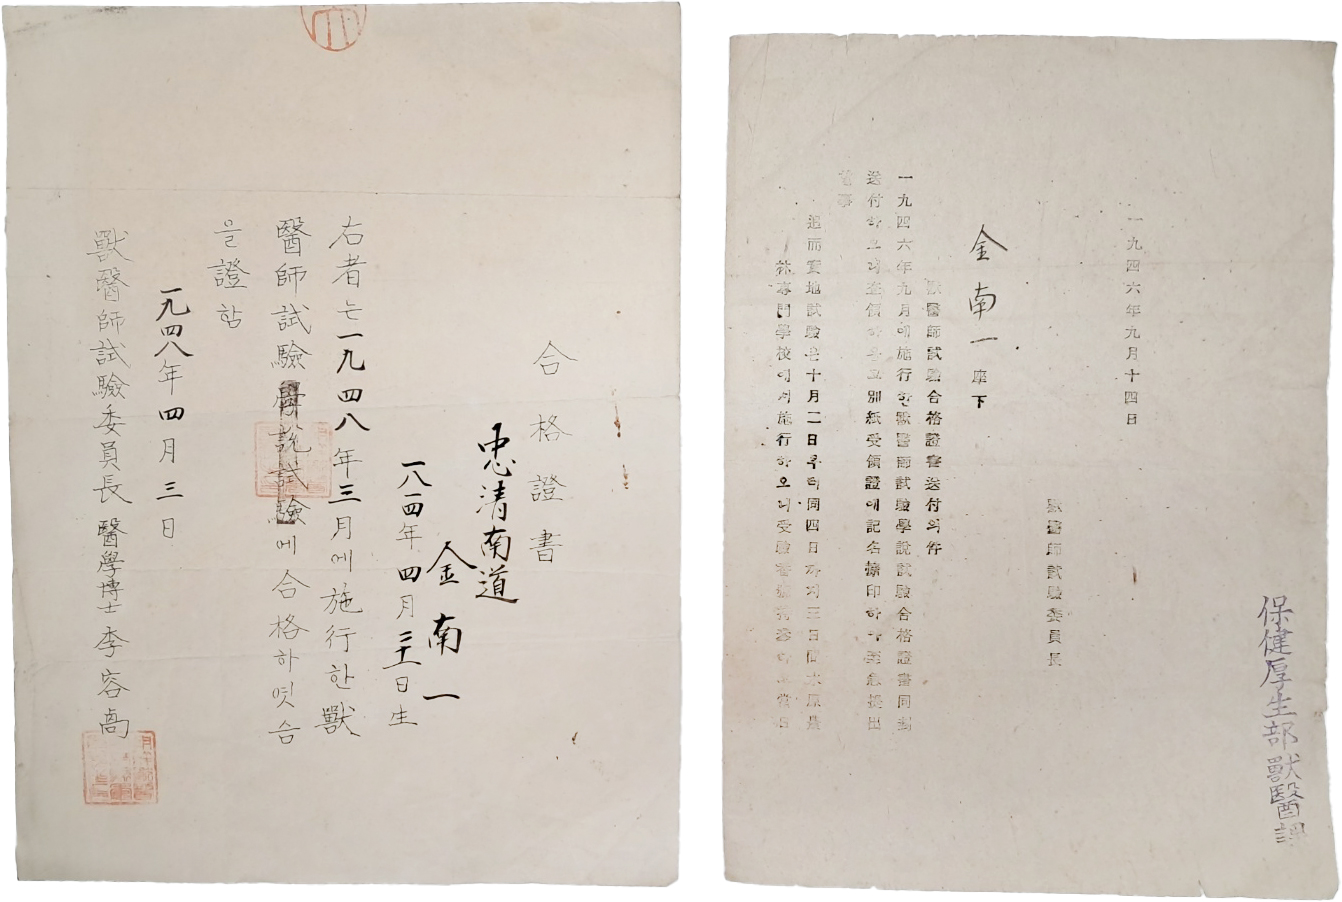 合格證書
忠清南道
金南一
年四月日生
右者는一九四八年三月에施行한獸
醫師試驗學說試驗에合格하엿슴
을證함
一九四八年四月三日
獸醫師試驗委員長醫學博士李容卨
保健厚生部獸醫課
一九四六年九月十四日
獸醫師試驗委員長
金南一座下
獸醫師試驗合格證書送付의件
一九四六年九月에施行한獸醫師試驗學說試驗合格證書同封
送付하오니査領하오別紙受領證에記名捺印하야至急提出
追而實地試驗은十月二日부터同四日까지三日間水原農
林專門學校에서施行하오니受驗當日